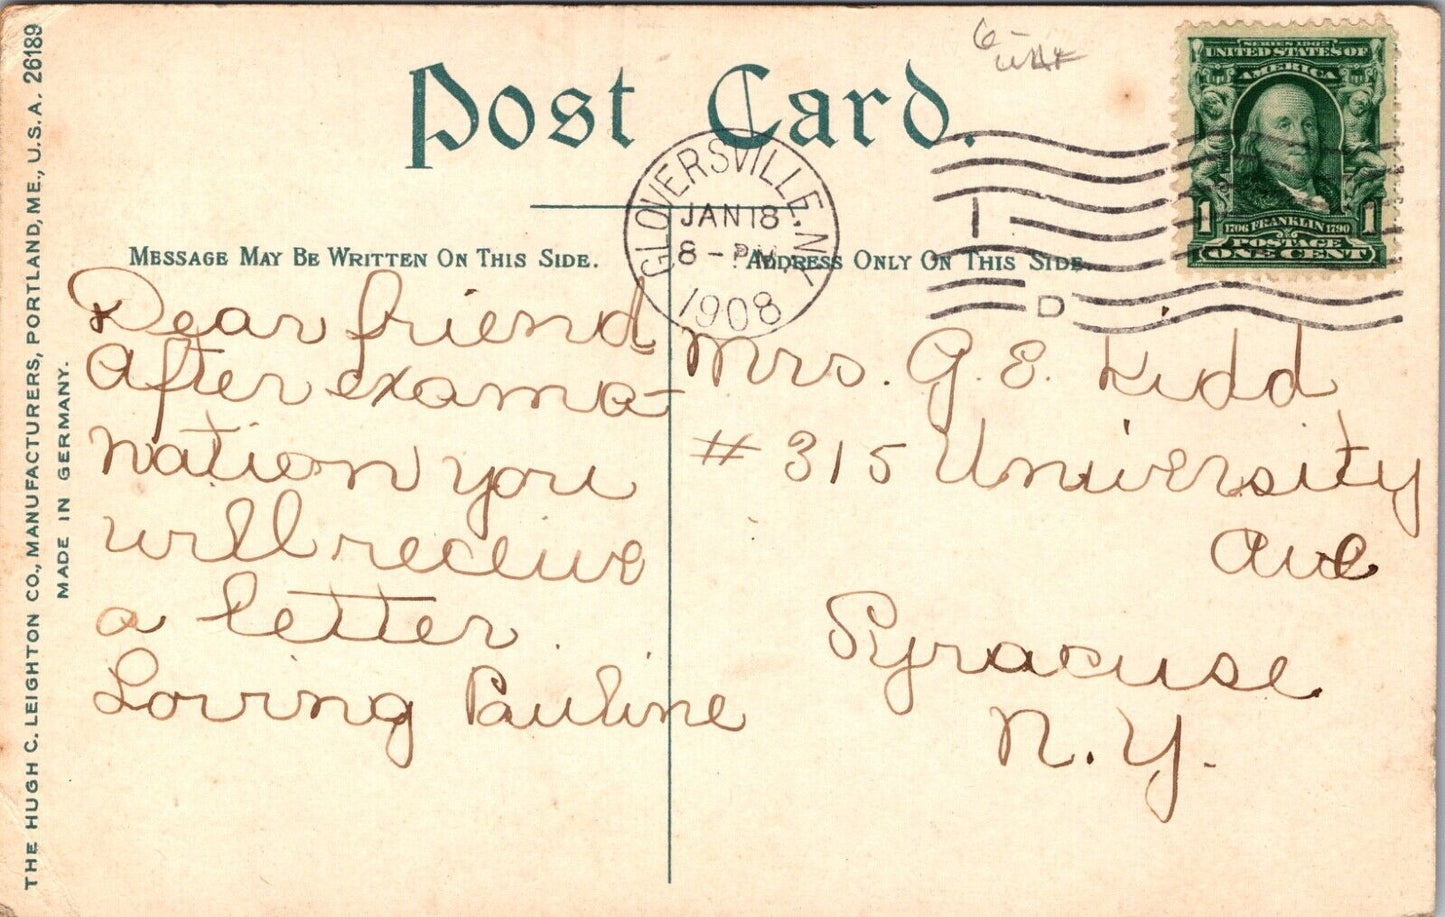 THE HUGH C. LEIGHTON CO., MANUFACTURERS, PORTLAND, ME., U.S.A. 26189
MADE IN GERMANY.
Post Card.
6-
SERIES 1902
UNITED STATES OF
AMERICA
1 1
1706 FRANKLIN 1790
POSTAGE
ONE CENT
GLOVERSVILLE, N.Y.
JAN 18
8-PM
1908
1
D
MESSAGE MAY BE WRITTEN ON THIS SIDE.
ADDRESS ONLY ON THIS SIDE
Dear friend
After exama-
nation you
will receive
a letter.
Loving Pauline
Mrs. G. E. Kidd
# 315 University
Ave
Syracuse
N.Y.